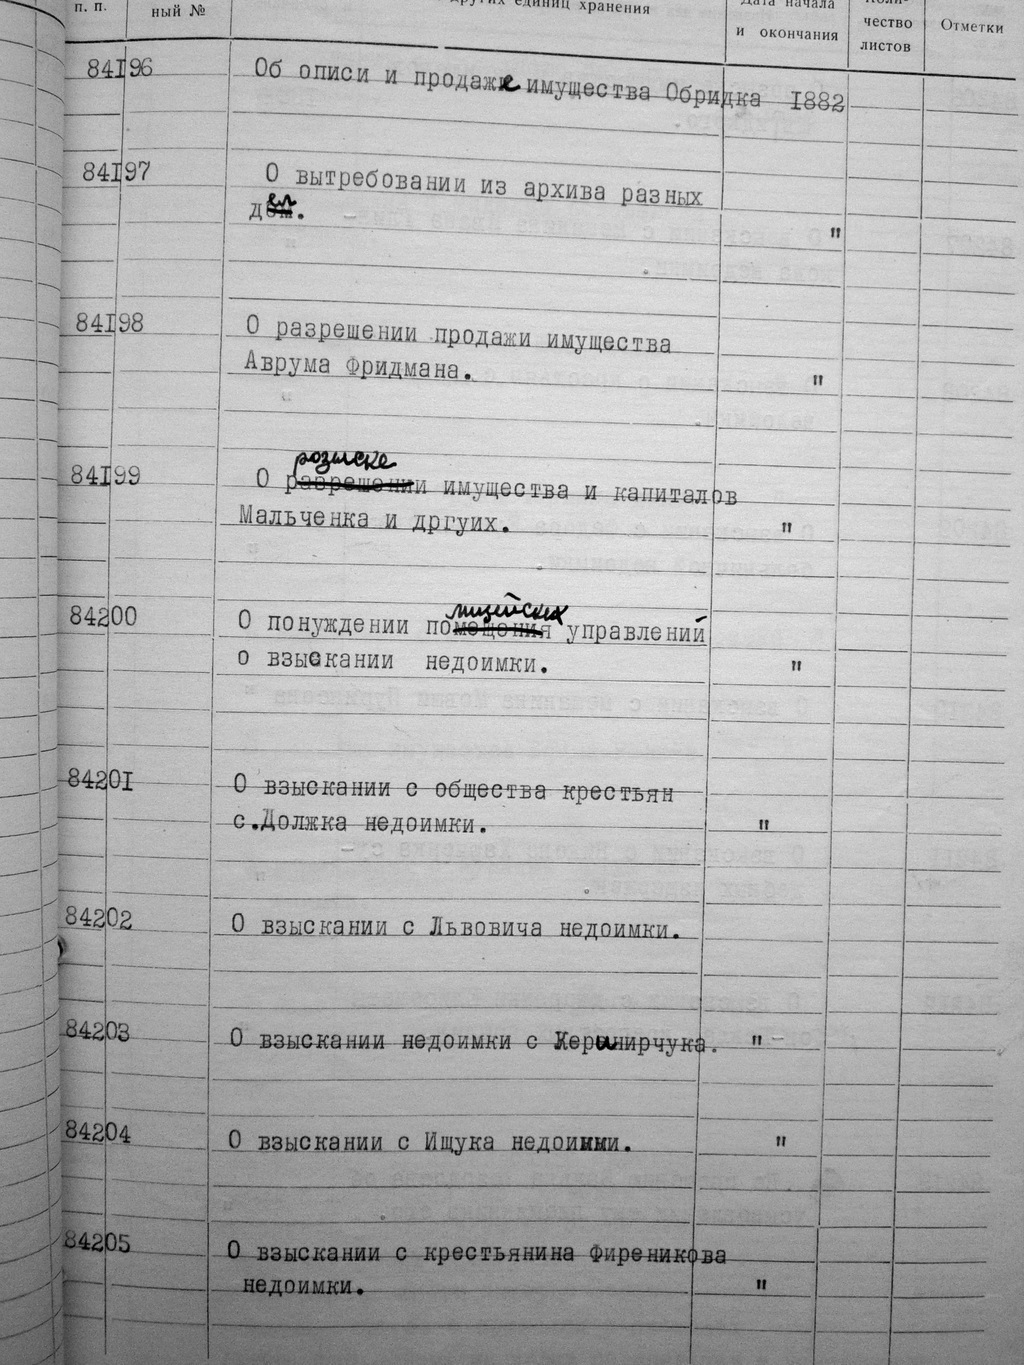 п. п.
ный №
других единиц хранения
Дата начала
и окончания
чество
листов
Отметки
84I96 Об описи и продаже имущества Обридка I882
84I97 О вытребовании из архива разных
дел. "
84I98 О разрешении продажи имущества
Аврума Фридмана. "
розыске
84I99 О разрешении имущества и капиталов
Мальченка и дргуих. "
лицейских
84200 О понуждении помещения управлений
о взыскании недоимки. "
8420I О взыскании с общества крестьян
с.Должка недоимки. "
84202 О взыскании с Львовича недоимки.
84203 О взыскании недоимки с "
84204 О взыскании с Ищука недоимки. "
84205 О взыскании с крестьянина Фиреникова
недоимки. "